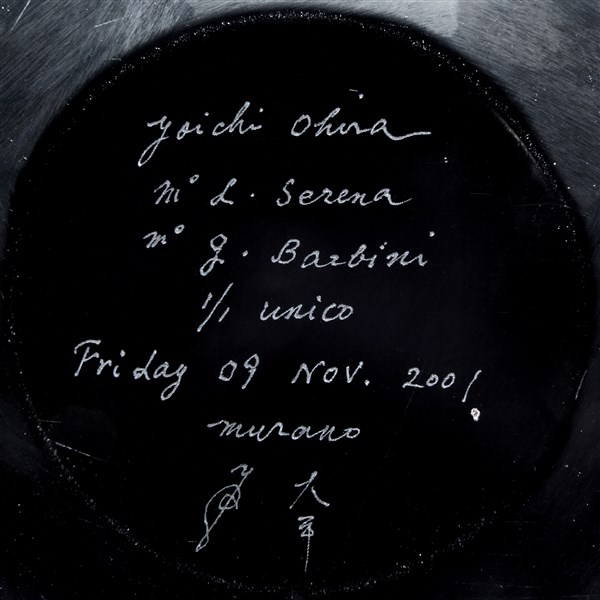 Yoichi Ohira
m° L. Serena
m° G. Barbini
1/1 unico
Friday 09 Nov. 2001
murano
大平